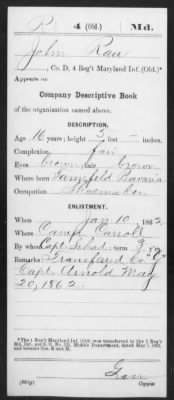 R 4 (Old.) Md.
John Rau
, Co. D, 4 Reg't Maryland Inf. (Old.)*
Appears on
Company Descriptive Book
of the organization named above.
DESCRIPTION.
Age 16 years; height 5 feet – inches.
Complexion fair
Eyes brown; hair brown
Where born Bavaria
Occupation Shoemaker
ENLISTMENT.
When Jan 10, 1862.
Where Camp Carroll
By whom Capt. Schad; term 3 y'rs.
Remarks: Transferred Co. E
Capt. Arnold May
20, 1862.
*The 4 Reg't Maryland Inf. (Old) was transferred to the 3 Reg't
Md. Inf., per S. O. No. , Middle Department, dated May 7, 1862,
and became Cos. and .
Copyist.